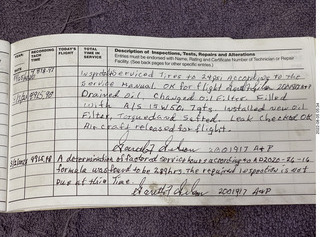 YEAR
DATE
RECORDING TACH TIME
TODAY'S FLIGHT
TOTAL TIME IN SERVICE
Description of Inspections, Tests, Repairs and Alterations
Entries must be endorsed with Name, Rating and Certificate Number of Technician or Repair Facility. (See back pages for other specific entries.)
Inspected/Serviced Tires to 24psi According to the
Service Manual. OK for flight
Drained Oil. Changed Oil Filter. Filled
with A/S 15W50 7qts. Installed new Oil
Filter, Torqued and Safted. Leak Checked OK
Aircraft released for flight.
2001917 A+P
A determination of factored service hours according to AD2020-26-16
formula was found to be 289hrs. The required inspection is not
Due at this Time.
2001917 A+P